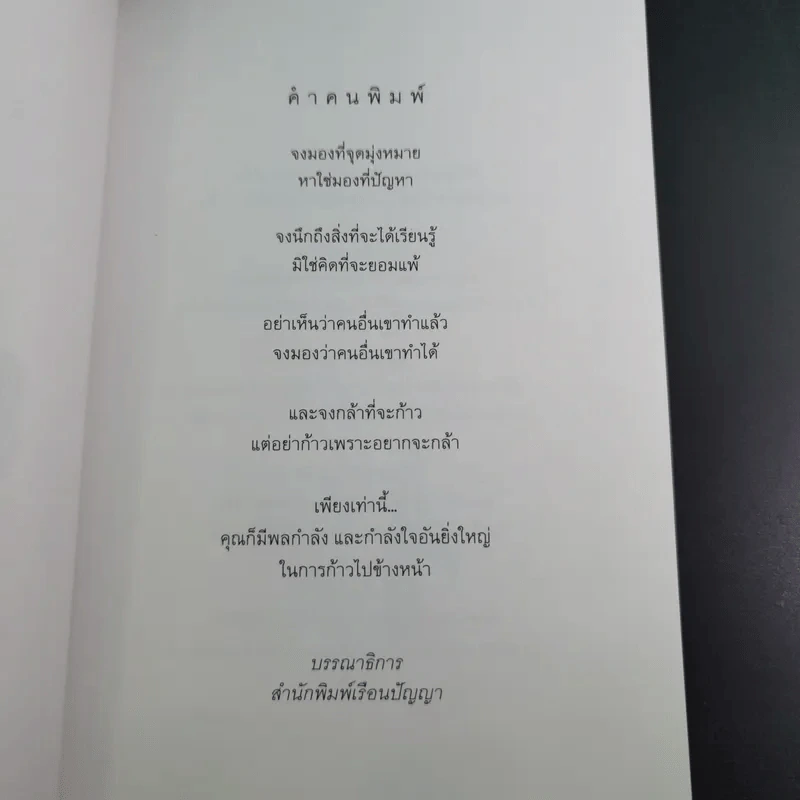 คำคนพิมพ์
จงมองที่จุดมุ่งหมาย
หาใช่มองที่ปัญหา
จงนึกถึงสิ่งที่จะได้เรียนรู้
มิใช่คิดที่จะยอมแพ้
อย่าเห็นว่าคนอื่นเขาทำแล้ว
จงมองว่าคนอื่นเขาทำได้
และจงกล้าที่จะก้าว
แต่อย่าก้าวเพราะอยากจะกล้า
เพียงเท่านี้...
คุณก็มีพลกำลัง และกำลังใจอันยิ่งใหญ่
ในการก้าวไปข้างหน้า
บรรณาธิการ
สำนักพิมพ์เรือนปัญญา